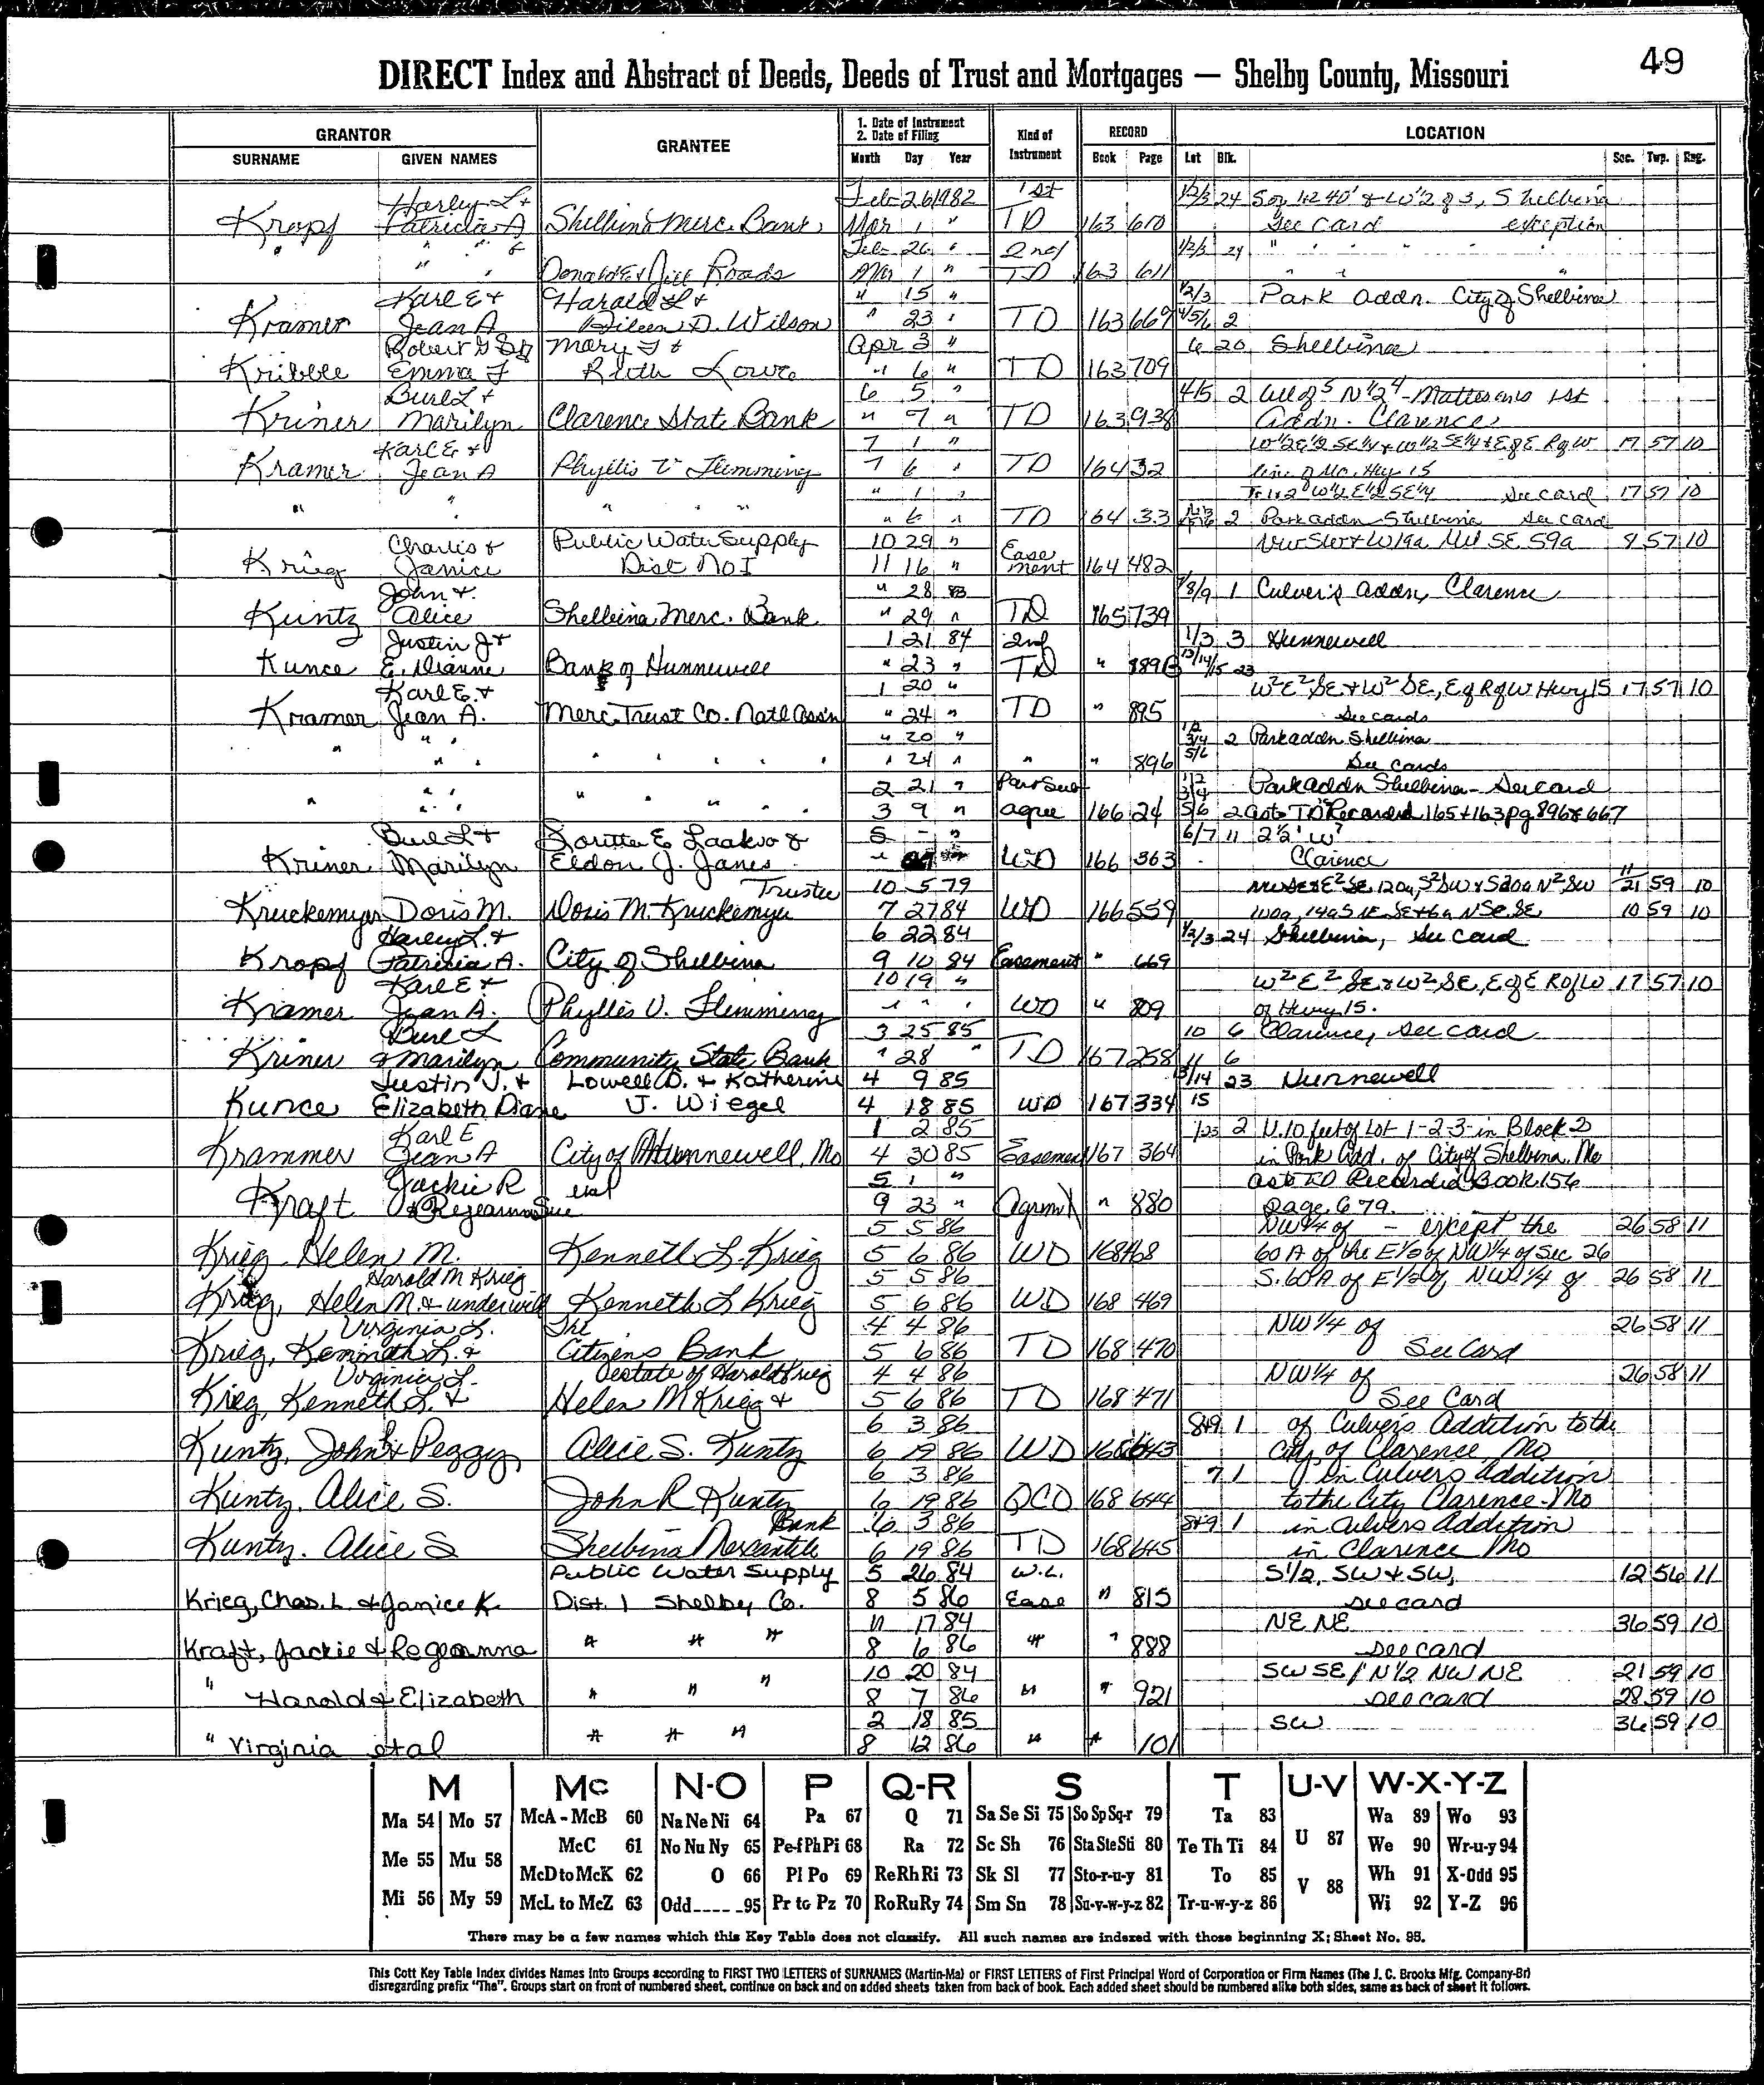 49
DIRECT Index and Abstract of Deeds, Deeds of Trust and Mortgages — Shelby County, Missouri
GRANTOR GRANTEE 1. Date of Instrument 2. Date of Filing Kind of Instrument RECORD LOCATION
SURNAME GIVEN NAMES Month Day Year Book Page Lot Blk. Sec. Twp. Rng.
Harley L + Feb 26 1982 1st 1/2/3 24 S of 1+2 40' & W 1/2 of 3, Shelbina
Kropf Patricia A Shelbina Merc. Bank Mar 1 " TD 163 610 See Card exception
" " Feb 26 " 2nd 1/2/3 24 " " " "
" " Donald E & Jill Roads Mar 1 " TD 163 611 " " "
Karl E + Harold L + " 15 " 1/2/3 Park Addn. City of Shelbina
Kramer Jean A Aileen D. Wilson " 23 " TD 163 669 4/5/6 2
Robert G Mary F + Apr 3 " 6 20 Shelbina
Kribble Emma F Ruth Lowe " 6 " TD 163 709
Burl L + 6 5 " 4/5 2 All of 5 N 1/2 4 - Mattesons 1st
Kriner Marilyn Clarence State Bank " 7 " TD 163 938 Addn. Clarence
Karl E + 7 1 " W 1/2 E 1/2 SE 1/4 + W 1/2 SE 1/4 E of E R of W 17 57 10
Kramer Jean A Phyllis V Flemming 7 6 " TD 164 32 line of Mo. Hwy 15
" 1 " Tr 1+2 W 1/2 E 1/2 SE 1/4 See card 17 57 10
" " " " " " 6 " TD 164 33 2 Park addn Shelbina See card
Charlis & Public Water Supply 10 29 " Ease NW SW & W 19a Mid SE 59a 8 57 10
Krieg Janice Dist No I 11 16 " ment 164 482
John + " 28 83 7/8/9 1 Culver's addn, Clarence
Kuntz Alice Shelbina Merc. Bank " 29 " TD 165 739
Justin J + 1 21 84 2nd 1/3 3 Hunnewell
Kunce E. Dianne Bank of Hunnewell " 23 " TD " 889B 13/14/15 23
Karl E. + 1 20 " W² E² SE + W² SE, E of R of W Hwy 15 17 57 10
Kramer Jean A. Merc. Trust Co. Natl Ass'n " 24 " TD " 895 See cards
" " " 20 " 1/2 3/4 2 Park addn Shelbina
" " " " " " " 24 " " " 896 5/6 See Cards
" " 2 21 " 1/2 3/4 Park Addn Shelbina - See card
" " " " " " 3 9 " agree 166 24 5/6 2 as to TD Recorded 165 + 163 pg 896 & 667
Burl L + Loretta E Laakso & 5 - " 6/7 11 2 1/2' W 7
Kriner Marilyn Eldon J. Janes " WD 166 363 Clarence
Trustee 10 5 79 NW SE & E² SE 120a, S² SW & S 20a N² SW 11/21 59 10
Kruckemyer Doris M. Doris M. Kruckemyer 7 27 84 WD 166 559 10 59 10
Harley L. + 6 22 84 1/2/3 24 Shelbina, See Card
Kropf Patricia A. City of Shelbina 9 10 84 Easement " 669
Karl E + 10 19 " W² E² SE & W² SE, E of E R of W 17 57 10
Kramer Jean A. Phyllis V. Flemming " " " WD " 809 of Hwy 15.
Burl L 3 25 85 10 6 Clarence, See card
Kriner & Marilyn Community State Bank " 28 " TD 167 258 11 6
Justin J. + Lowell D. + Katherine 4 9 85 13/14 23 Hunnewell
Kunce Elizabeth Diane J. Wiegel 4 18 85 WD 167 334 15
Karl E 1 2 85 1/2/3 2 U.10 feet of Lot 1-2-3 in Block 2
Krammer Jean A City of Hunnewell, Mo 4 30 85 Easement 167 364 in Park Add. of City of Shelbina Mo
Jackie R etal 5 1 " as to TD Recorded Book 156
Kraft & Rejeanna Sue 9 23 " Agrmt " 880 Page 679.
5 5 86 NW 1/4 of - except the 26 58 11
Krieg Helen M. Kenneth L. Krieg 5 6 86 WD 168 468 60 A of the E 1/2 of NW 1/4 of Sec 26
Harold M Krieg 5 5 86 S. 60 A of E 1/2 of NW 1/4 of 26 58 11
Krieg, Helen M. & under will Kenneth L Krieg 5 6 86 WD 168 469
Virginia L. The 4 4 86 NW 1/4 of 26 58 11
Krieg, Kenneth L. & Citizens Bank 5 6 86 TD 168 470 See Card
Virginia L. estate of Harold Krieg 4 4 86 NW 1/4 of 26 58 11
Krieg, Kenneth L. & Helen M Krieg & 5 6 86 TD 168 471 See Card
6 3 86 8&9 1 of Culvers Addition to the
Kuntz, John & Peggy Alice S. Kuntz 6 19 86 WD 168 643 City of Clarence, Mo
6 3 86 7 1 in Culvers Addition
Kuntz, Alice S. John R Kuntz 6 19 86 QCD 168 644 to the City Clarence - Mo
Bank 6 3 86 8&9 1 in Culvers Addition
Kuntz, Alice S Shelbina Mercantile 6 19 86 TD 168 645 in Clarence Mo
Public Water Supply 5 26 84 W.L. S 1/2, SW & SW, 12 56 11
Krieg, Chas. L. & Janice K. Dist. 1 Shelby Co. 8 5 86 Ease " 815 see card
11 17 84 NE NE 36 59 10
Kraft, Jackie & Regeanna " " " 8 6 86 " " 888 see card
10 20 84 SW SE / N 1/2 NW NE 21 59 10
" Harold & Elizabeth " " " 8 7 86 " " 921 see card 28 59 10
2 18 85 SW 36 59 10
" Virginia etal " " " 8 12 86 " " 101
M Mc N-O P Q-R S T U-V W-X-Y-Z
Ma 54 Mo 57 McA - McB 60 Na Ne Ni 64 Pa 67 Q 71 Sa Se Si 75 So Sp Sq-r 79 Ta 83 U 87 Wa 89 Wo 93
Me 55 Mu 58 McC 61 No Nu Ny 65 Pe-f Ph Pi 68 Ra 72 Sc Sh 76 Sta Ste Sti 80 Te Th Ti 84 We 90 Wr-u-y 94
McD to McK 62 O 66 Pl Po 69 Re Rh Ri 73 Sk Sl 77 Sto-r-u-y 81 To 85 V 88 Wh 91 X-Odd 95
Mi 56 My 59 McL to McZ 63 Odd 95 Pr to Pz 70 Ro Ru Ry 74 Sm Sn 78 Su-v-w-y-z 82 Tr-u-w-y-z 86 Wi 92 Y-Z 96
There may be a few names which this Key Table does not classify. All such names are indexed with those beginning X; Sheet No. 95.
This Cott Key Table Index divides Names into Groups according to FIRST TWO LETTERS of SURNAMES (Martin-Ma) or FIRST LETTERS of First Principal Word of Corporation or Firm Names (The J. C. Brooks Mfg. Company-Br)
disregarding prefix "The". Groups start on front of numbered sheet, continue on back and on added sheets taken from back of book. Each added sheet should be numbered alike both sides, same as back of sheet it follows.